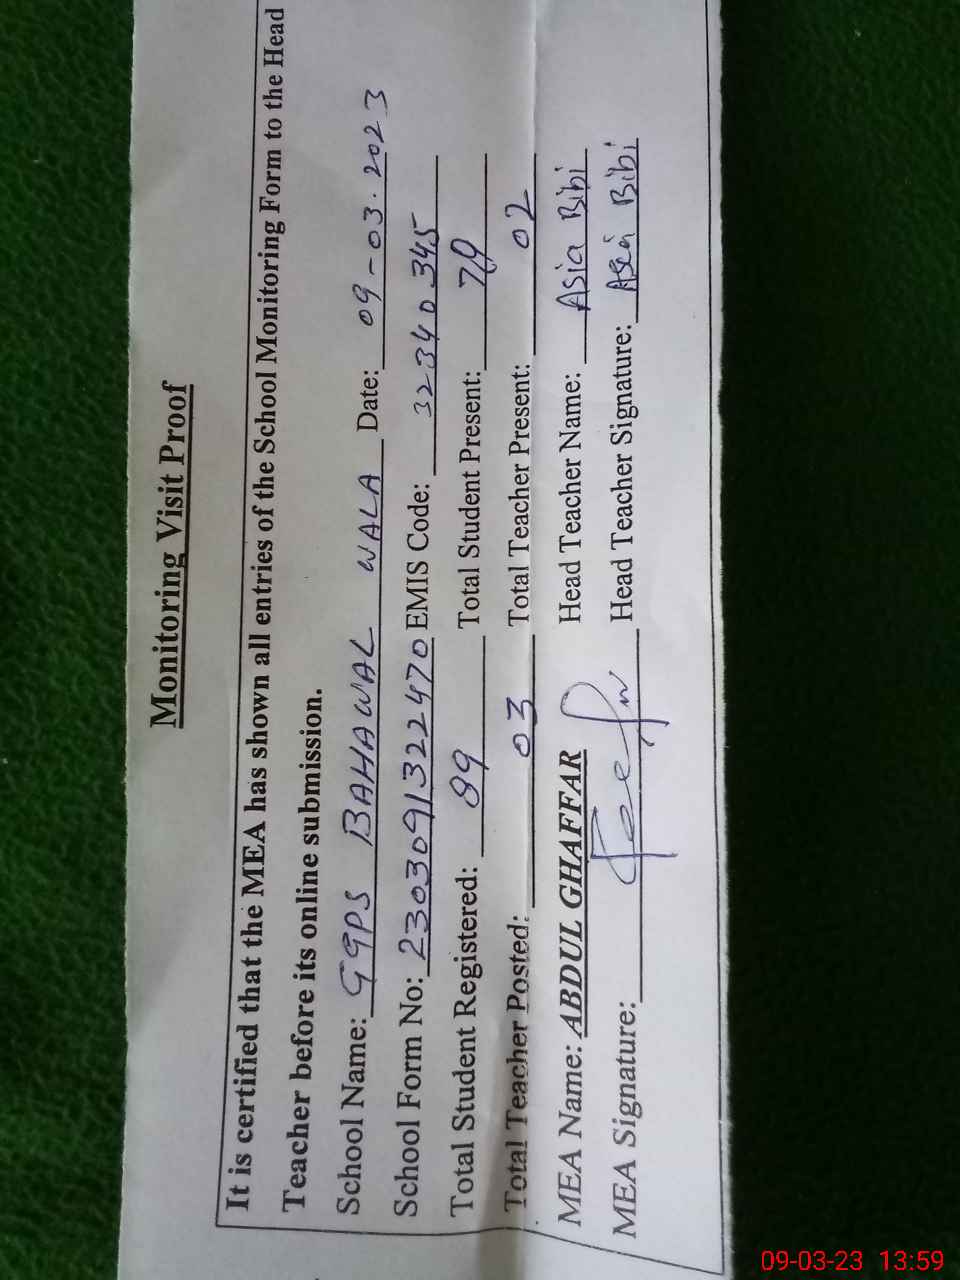 Monitoring Visit Proof
It is certified that the MEA has shown all entries of the School Monitoring Form to the Head
Teacher before its online submission.
School Name: GGPS BAHAWAL WALA Date: 09-03.2023
School Form No: 2303091322470 EMIS Code: 32340345
Total Student Registered: 89 Total Student Present: 79
Total Teacher Posted: 03 Total Teacher Present: 02
MEA Name: ABDUL GHAFFAR Head Teacher Name: Asia Bibi
MEA Signature: Head Teacher Signature: Asia Bibi
09-03-23 13:59